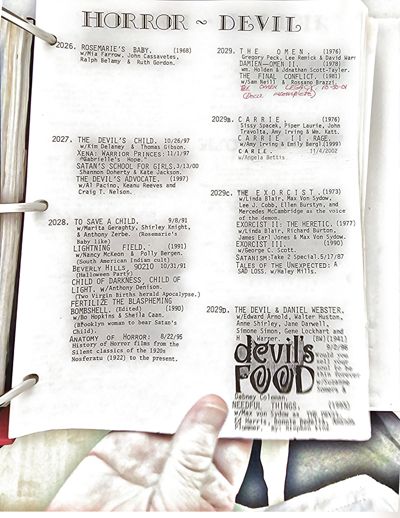 HORROR ~ DEVIL
2026. ROSEMARIE'S BABY. (1968)
w/Mia Farrow, John Cassavetes,
Ralph Belamy & Ruth Gordon.
2027. THE DEVIL'S CHILD. 10/26/97
w/Kim Delaney & Thomas Gibson.
XENA: WARRIOR PRINCESS: 11/1/97
"Gabrielle's Hope.
SATAN'S SCHOOL FOR GIRLS. 3/13/00
Shannon Doherty & Kate Jackson.
THE DEVIL'S ADVOCATE. (1997)
w/Al Pacino, Keanu Reeves and
Craig T. Nelson.
2028. TO SAVE A CHILD. 9/8/91
w/Marita Geraghty, Shirley Knight,
& Anthony Zerbe. (Rosemarie's
Baby like)
LIGHTNING FIELD. (1991)
w/Nancy McKeon & Polly Bergen.
(South American Indian cult)
BEVERLY HILLS, 90210 10/31/91
(Halloween Party)
CHILD OF DARKNESS, CHILD OF
LIGHT. w/Anthony Denison.
(Two Virgin Births herald Apocalypse.)
FERTILIZE THE BLASPHEMING
BOMBSHELL. (Edited) (1990)
w/Bo Hopkins & Sheila Caan.
(Brooklyn woman to bear Satan's
Child).
ANATOMY OF HORROR: 8/22/95
History of Horror films from the
Silent classics of the 1920s
Nosferatu (1922) to the present.
2029. THE OMEN. (1976)
Gregory Peck, Lee Remick & David Warr
DAMIEN—OMEN II. (1978)
Wm. Holden & Jonathan Scott-Tayler.
THE FINAL CONFLICT. (1981)
w/Sam Neill & Rossano Brazzi.
THE OMEN LEGACY. 10-30-01
(Docu incomplete)
2029a. CARRIE (1976)
Sissy Spacek, Piper Laurie, John
Travolta, Amy Irving & Wm. Katt.
CARRIE II. RAGE
w/Amy Irving & Emily Bergl (1999)
CARIE. 11/4/2002
w/Angela Bettis
2029c. THE EXORCIST. (1973)
w/Linda Blair, Max Von Sydow,
Lee J. Cobb, Ellen Burstyn, and
Mercedes McCambridge as the voice
of the demon.
EXORCIST II: THE HERETIC. (1977)
w/Linda Blair, Richard Burton,
James Earl Jones & Max Von Sydow.
EXORCIST III. (1990)
w/George C. Scott.
SATANISM: Take 2 Special. 5/17/87
TALES OF THE UNEXPECTED: A
SAD LOSS. w/Haley Mills.
2029D. THE DEVIL & DANIEL WEBSTER.
w/Edward Arnold, Walter Huston,
Anne Shirley, Jane Darwell,
Simone Simon, Gene Lockhart and
H. Warner. (BW)(1941)
devil's
FOOD
9/2/96
would you
sell your
soul to be
thin forever
w/Suzanne
Somers &
Dabney Coleman.
NEEDFUL THINGS. (1993)
w/Max von Sydow as the devil.
Ed Harris, Bonnie Bedelia, Amanda
Plummer. By: Stephen King